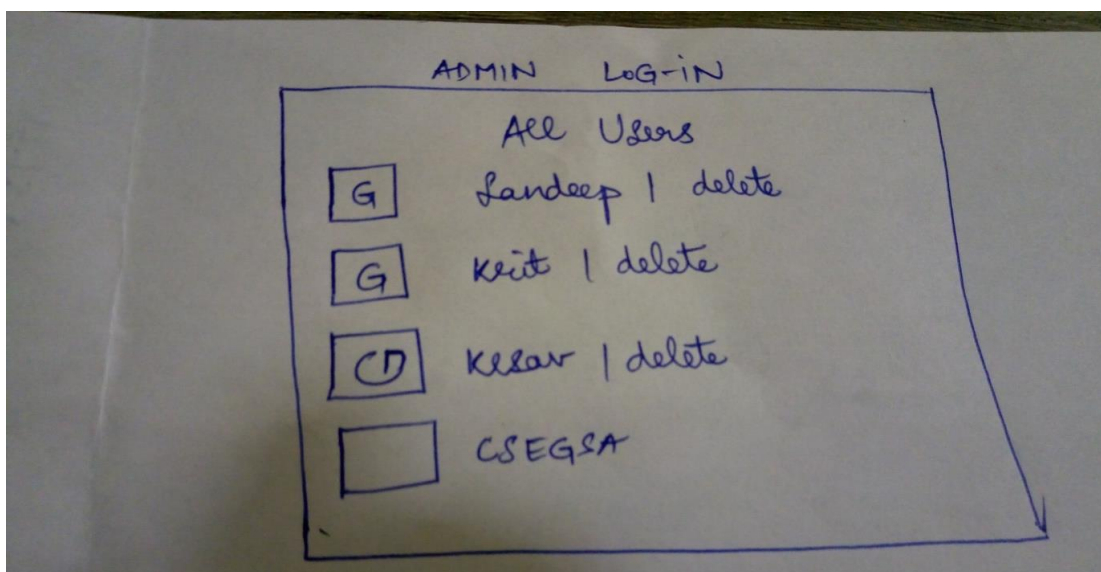 ADMIN LOG-IN
All Users
G Sandeep | delete
G Krit | delete
G Kesav | delete
CSEGSA